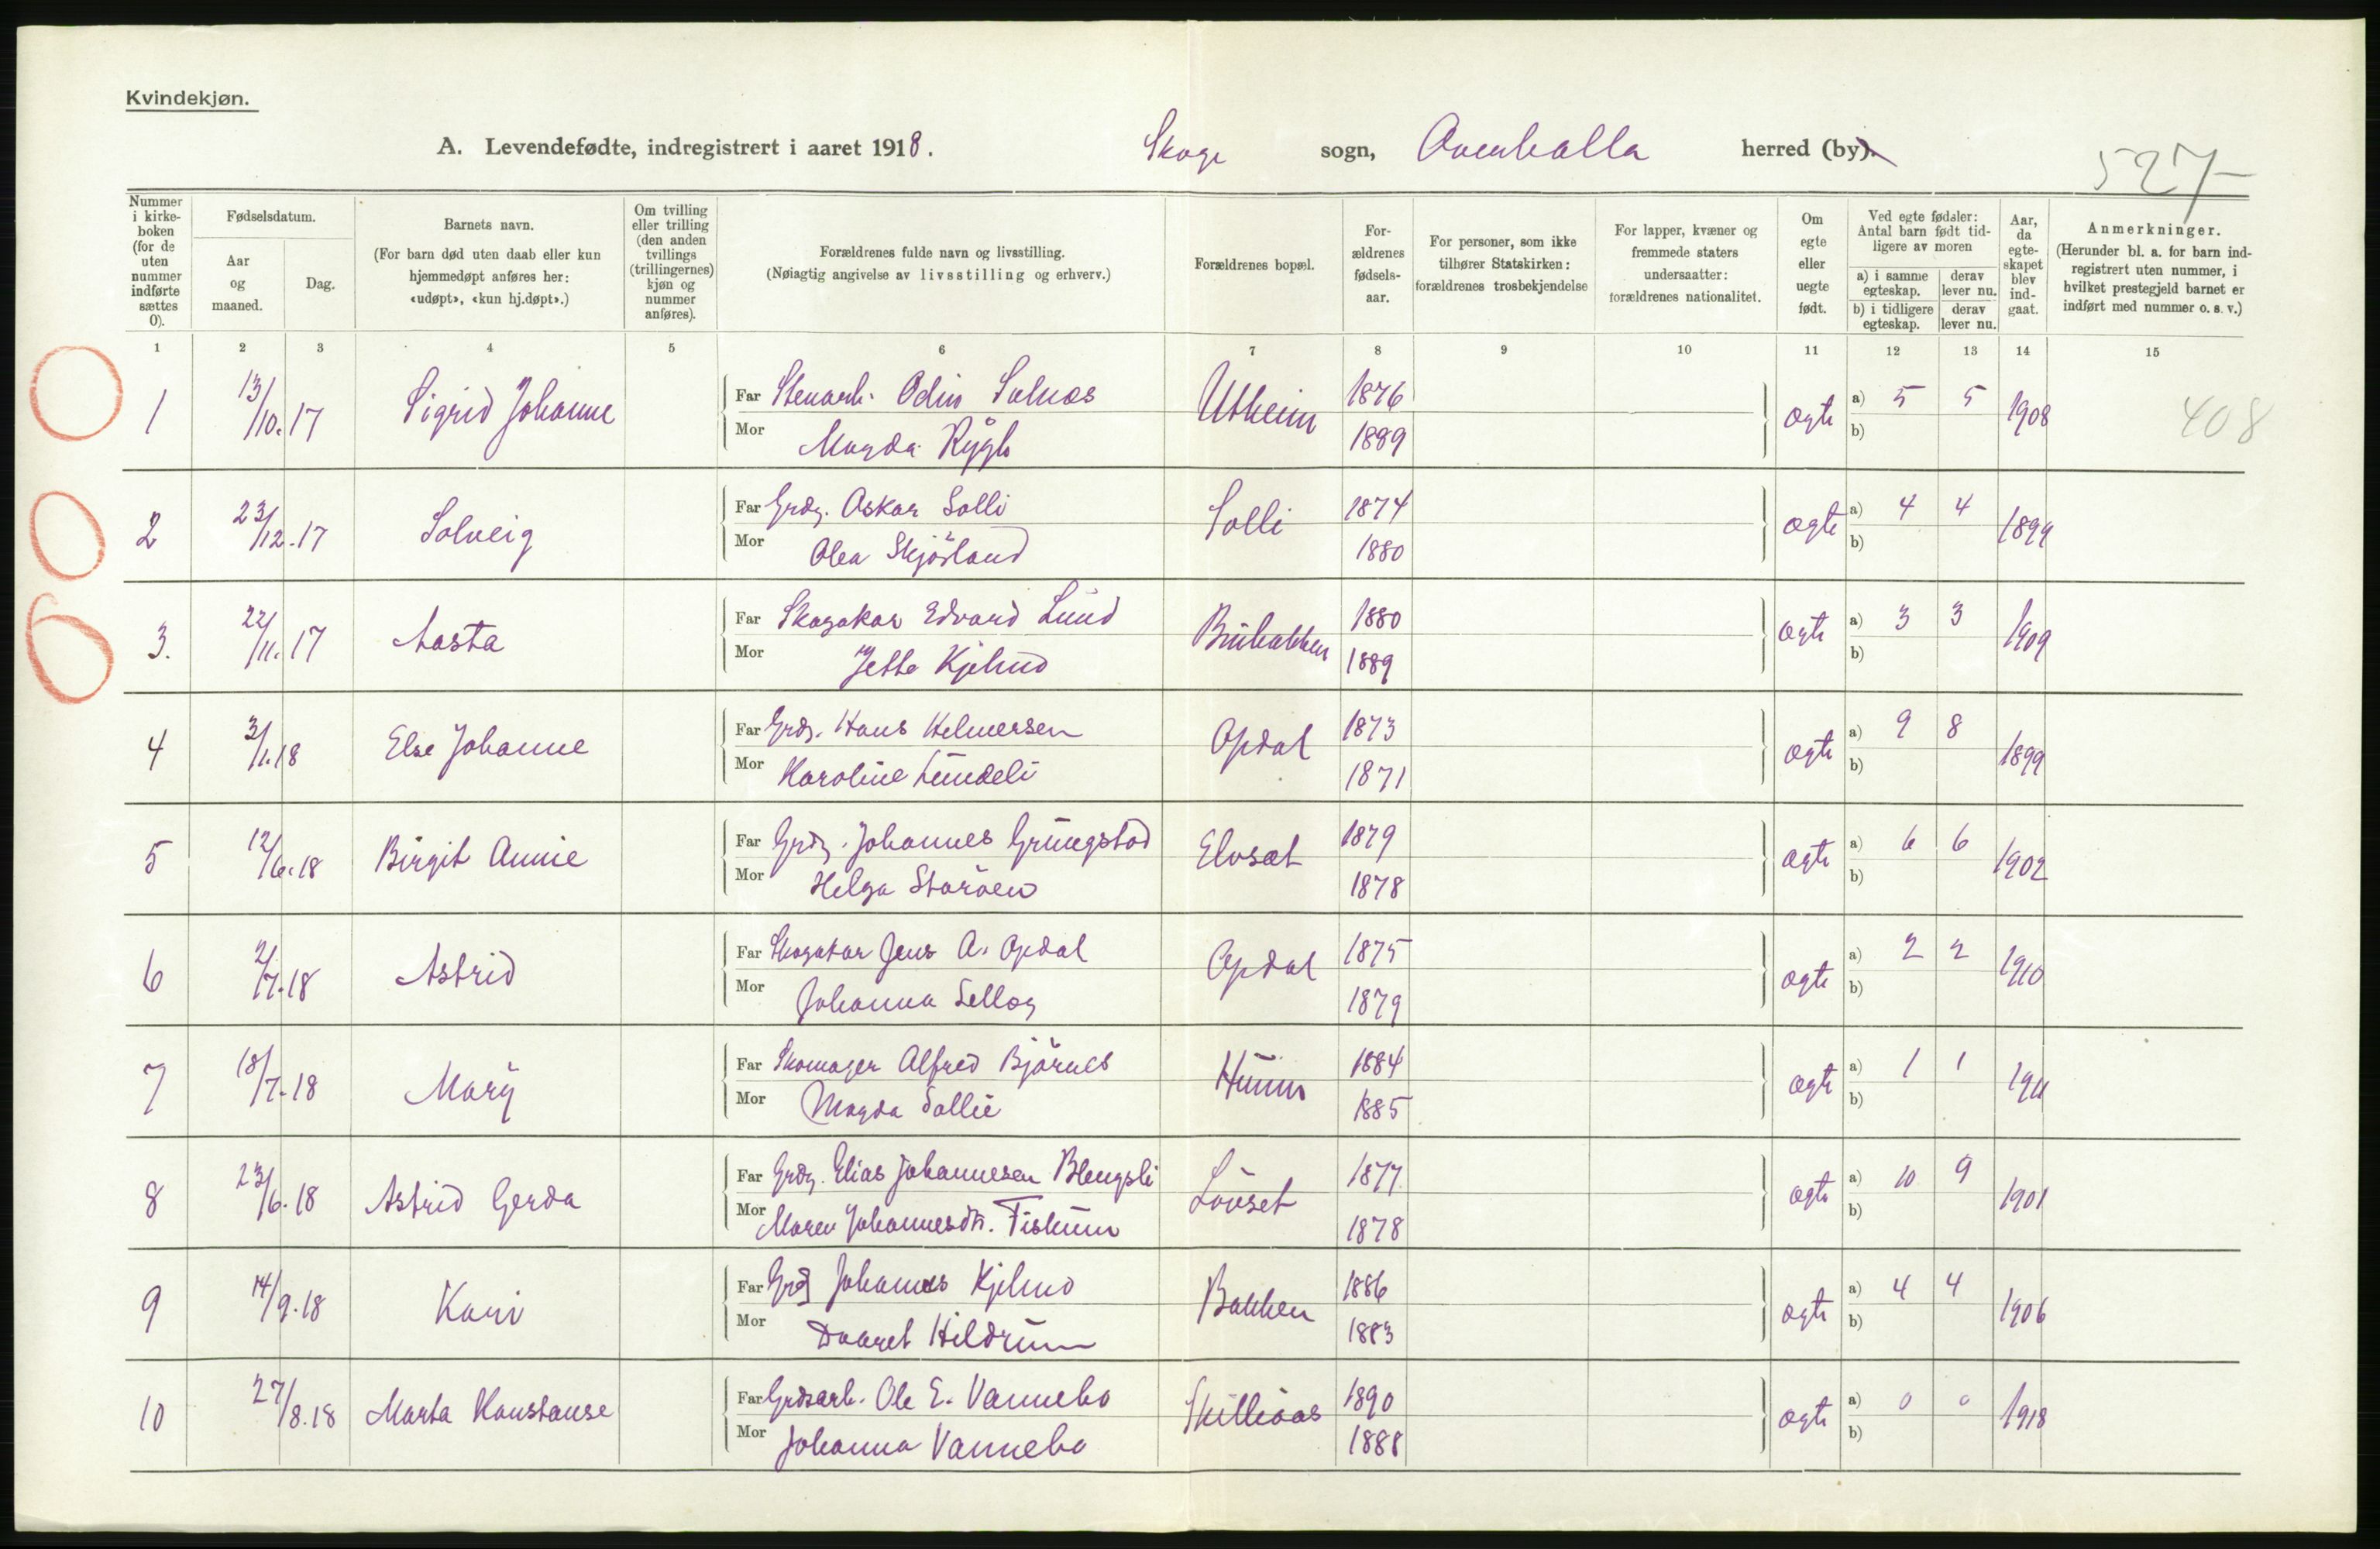 Kvindekjøn.
A. Levendefødte, indregistrert i aaret 1918. Skage sogn, Overhalla herred (by).
527
Nummer i kirke-boken (for de uten nummer indførte sættes 0).
Fødselsdatum.
Aar og maaned.
Dag.
Barnets navn.
(For barn død uten daab eller kun hjemmedøpt anføres her: «udøpt», «kun hj.døpt».)
Om tvilling eller trilling (den anden tvillings (trillingernes) kjøn og nummer anføres).
Forældrenes fulde navn og livsstilling.
(Nøiagtig angivelse av livsstilling og erhverv.)
Forældrenes bopæl.
For-ældrenes fødsels-aar.
For personer, som ikke tilhører Statskirken: forældrenes trosbekjendelse
For lapper, kvæner og fremmede staters undersaatter: forældrenes nationalitet.
Om egte eller uegte født.
Ved egte fødsler: Antal barn født tid-ligere av moren
a) i samme egteskap.
derav lever nu.
b) i tidligere egteskap.
derav lever nu.
Aar, da egte-skapet blev ind-gaat.
Anmerkninger.
(Herunder bl. a. for barn ind-registrert uten nummer, i hvilket prestegjeld barnet er indført med nummer o. s. v.)
1 2 3 4 5 6 7 8 9 10 11 12 13 14 15
1 13/10.17 Sigrid Johanne Far Stenarb. Odin Solnes Utheim 1876 egte a) 5 5 1908 408
Mor Magda Rygh 1889 b)
2 23/12.17 Solveig Far Grdr. Oskar Solli Solli 1874 egte a) 4 4 1899
Mor Olea Skjörland 1880 b)
3. 22/11.17 Aasta Far Skogskar Edvard Lund 1880 egte a) 3 3 1909
Mor Jette Kjelmo 1889 b)
4 3/1.18 Else Johanne Far Grdr. Hans Helmersen Opdal 1873 egte a) 9 8 1899
Mor Karoline Lundeli 1871 b)
5 12/6.18 Birgit Annie Far Grdr. Johannes Grungstad Elvset 1879 egte a) 6 6 1902
Mor Helga Storöen 1878 b)
6 2/7.18 Astrid Far Skogskar Jens A. Opdal Opdal 1875 egte a) 2 2 1910
Mor Johanna Selläg 1879 b)
7 18/7.18 Mary Far Skomager Alfred Björnes Hunn 1884 egte a) 1 1 1911
Mor Magda Sollie 1885 b)
8 23/6.18 Astrid Gerda Far Grdr. Elias Johannesen Blengsli Lövset 1877 egte a) 10 9 1901
Mor Maren Johannesdtr. Fiskum 1878 b)
9 14/9.18 Kari Far Grdr Johannes Kjelmo Bakken 1886 egte a) 4 4 1906
Mor Daaret Hildrum 1883 b)
10 27/8.18 Marta Konstanse Far Grdsarb. Ole E. Vannebo Skilleaas 1890 egte a) 0 0 1918
Mor Johanna Vannebo 1888 b)